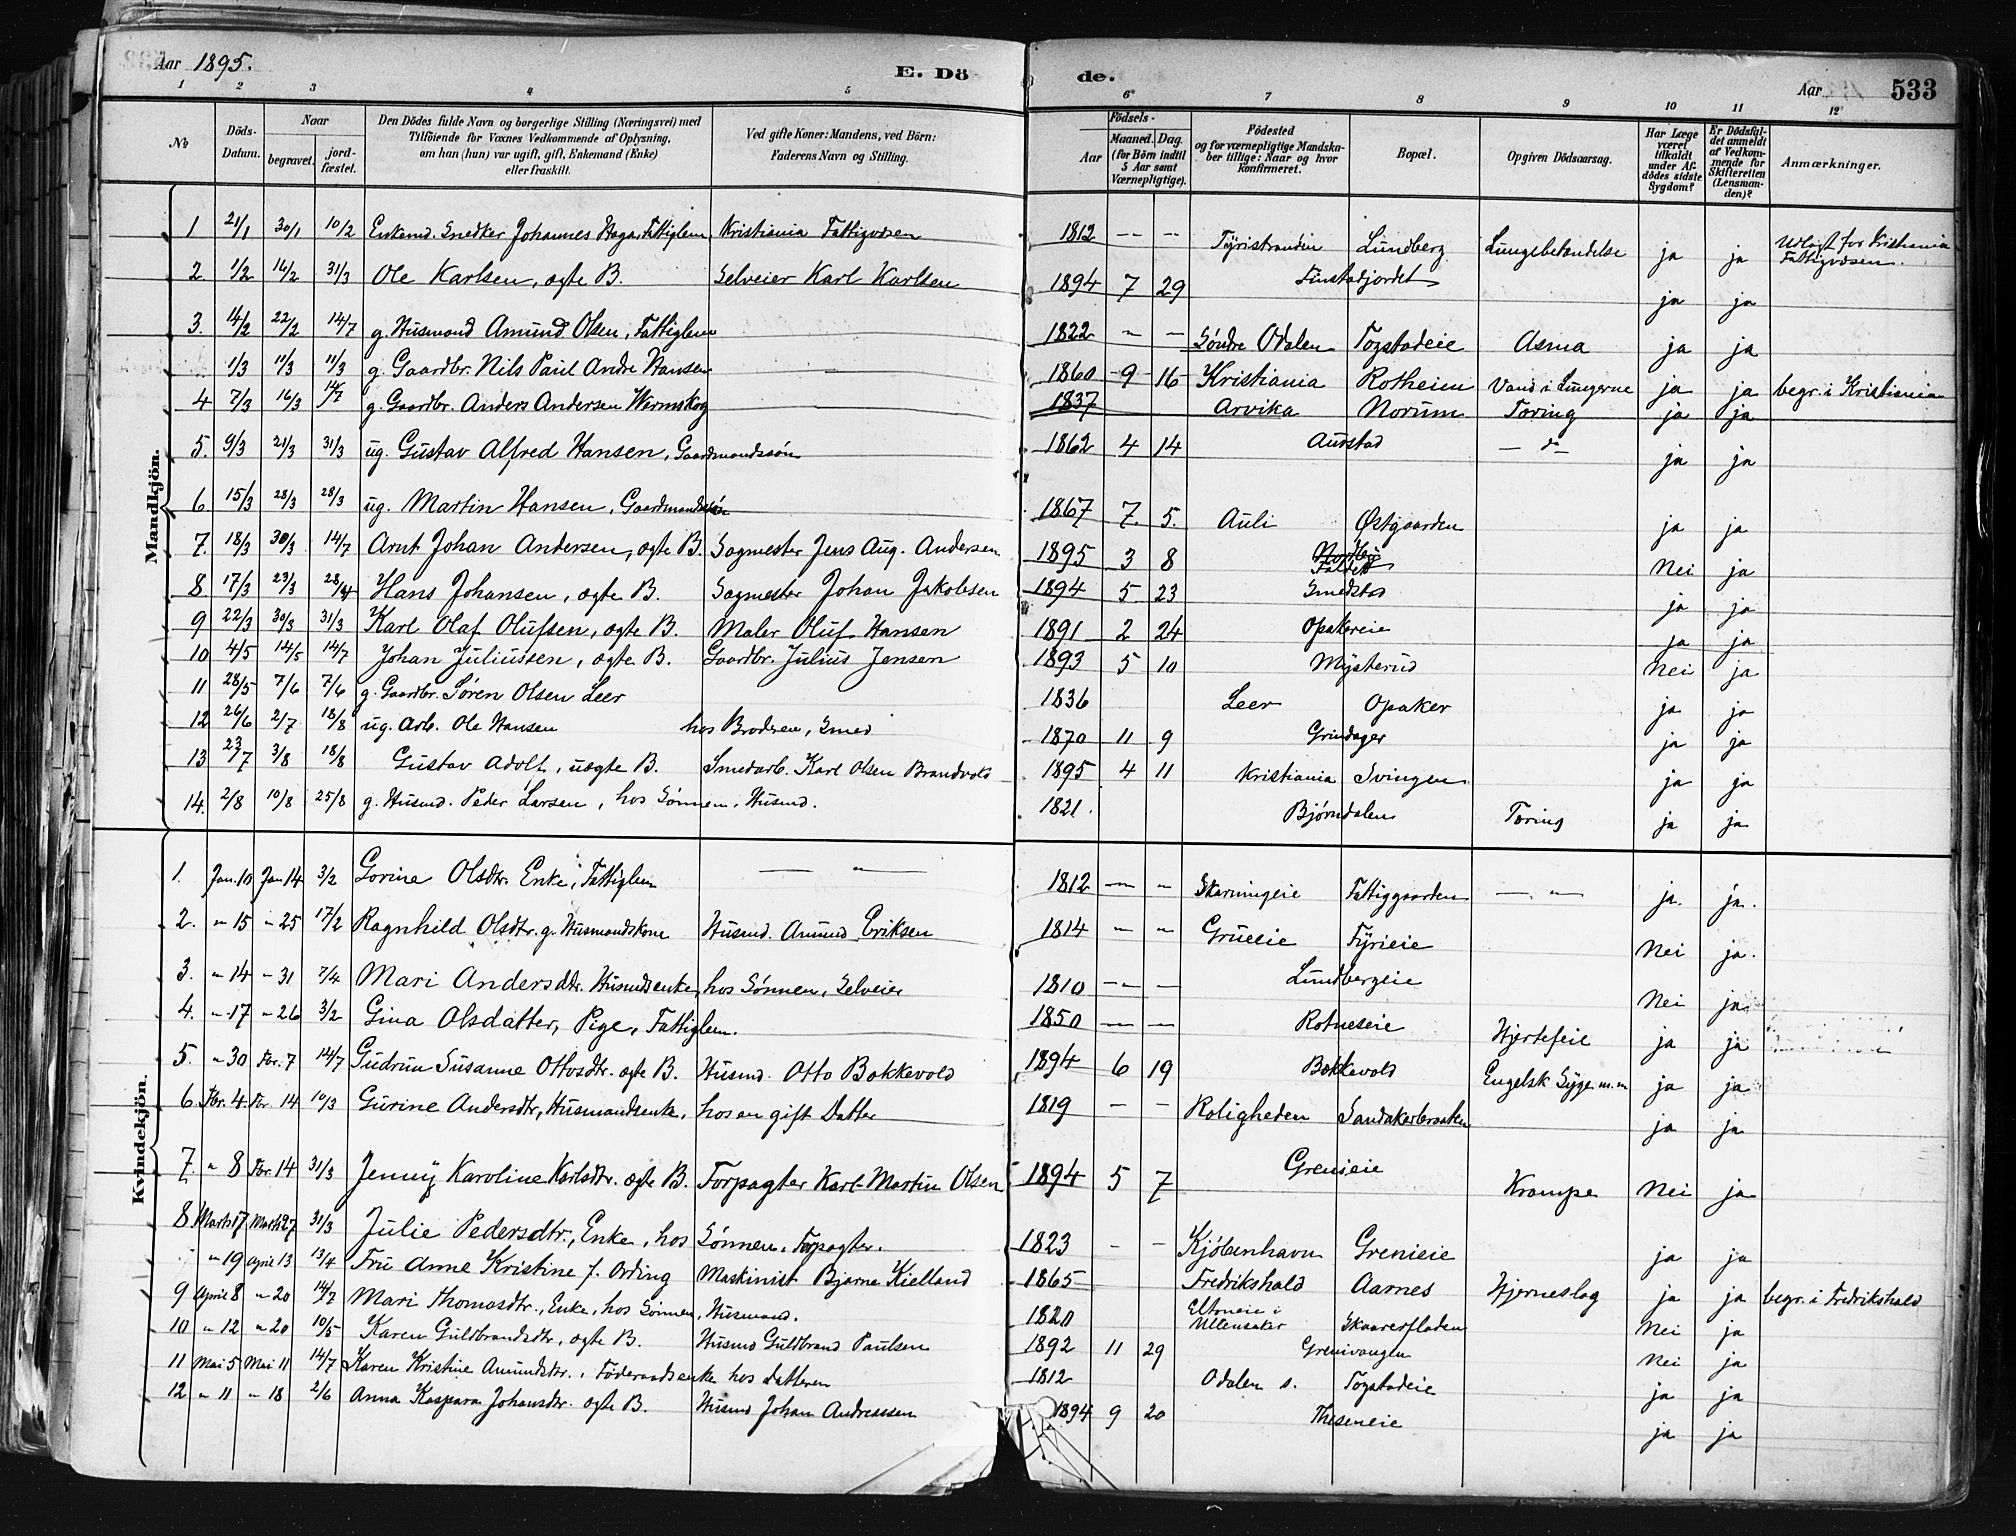 Aar 1895. E. Dö de. Aar 533
1 2 3 4 5 6 7 8 9 10 11 12
No Döds-Datum. Naar begravet. jord-fæstet. Den Dödes fulde Navn og borgerlige Stilling (Næringsvei) med Tilföiende for Voxnes Vedkommende af Oplysning, om han (hun) var ugift, gift, Enkemand (Enke) eller fraskilt. Ved gifte Koner: Mandens, ved Börn: Faderens Navn og Stilling. Födsels- Aar Maaned. Dag. (for Börn indtil 5 Aar samt Værnepligtige). Födested og for værnepligtige Mandskaber tillige: Naar og hvor konfirmeret. Bopæl. Opgiven Dödsaarsag. Har Læge været tilkaldt under Afdödes sidste Sygdom? Er Dödsfaldet anmeldt af Vedkommende for Skifteretten (Lensmanden)? Anmærkninger.
Mandkjön.
1 21/1 30/1 10/2 Enkemd. Snedker Johannes Haga, Fattiglem Kristiania Fattigvæsen 1812 — — Tyristranden Lundberg Lungebetændelse ja ja Udlagt for Kristiania Fattigvæsen.
2 1/2 16/2 31/3 Ole Karlsen, ægte B. Selveier Karl Karlsen 1894 7 29 Finstadjordet ja ja
3. 14/2 22/2 14/7 g. Husmand Amund Olsen, Fattiglem 1822 — — Søndre Odalen Togstadeie Asma ja ja
1/3 11/3 11/3 g. Gaardbr. Nils Paul Andre Hansen 1860 9 16 Kristiania Rotheim Vand i Lungerne ja ja begr. i Kristiania
4 7/3 16/3 14/7 g. Gaardbr. Anders Andersen Wermskog 1837 Arvika Norum Tæring ja ja
5. 9/3 21/3 31/3 ug. Gustav Alfred Hansen, Gaardmandssøn 1862 4 14 Aurstad — d— ja ja
6 15/3 28/3 28/3 ug. Martin Hansen, Gaardmandssøn 1867 7. 5. Auli Østgaarden ja ja
7. 18/3 30/3 14/7 Arnt Johan Andersen, ægte B. Sagmester Jens Aug. Andersen 1895 3 8 Nei ja
8 17/3 23/3 28/4 Hans Johansen, ægte B. Sagmester Johan Jakobsen 1894 5 23 Smedstad ja ja
9 22/3 30/3 31/3 Karl Olaf Olufsen, ægte B. Maler Oluf Hansen 1891 2 24 Opakereie ja ja
10 4/5 14/5 14/7 Johan Juliussen, ægte B. Gaardbr. Julius Jensen 1893 5 10 Mysterud Nei ja
11 28/5 7/6 7/6 g. Gaardbr. Søren Olsen Leer 1836 Leer Opaker ja ja
12 26/6 2/7 18/8 ug. Arb. Ole Hansen hos Broderen, Smed 1870 11 9 Grindager ja ja
13 23/7 3/8 18/8 Gustav Adolf, uægte B. Smedarb. Karl Olsen Brandvold 1895 4 11 Kristiania Svingen ja ja
14. 2/8 10/8 25/8 g. Husmd. Peder Larsen, hos Sønnen, Husmd. 1821. Bjørndalen Tæring ja ja
Kvindekjön.
1. Jan. 10 Jan 14 3/2 Gorine Olsdtr. Enke, Fattiglem — " — 1812 — " Skarningeie Fattiggaarden — " — ja. ja.
2. " 15 " 25 17/2 Ragnhild Olsdtr. g. Husmandskone Husmd. Amund Eriksen 1814 — " Grueeie Fyrieie Nei ja.
3. " 14 " 31 7/4 Mari Andersdtr. Husmdsenke, hos Sønnen, Selveier 1810 — — Lundbergeie Nei ja
4. " 17 " 26 3/2 Gina Olsdatter, Pige, Fattiglem. 1850 — — Rotneseie Hjertefeil ja ja
5. " 30 Fbr. 7 14/7 Gudrun Susanne Ottosdtr. ægte B. Husmd. Otto Bokkevold 1894 6 19 Bokkevold Engelsk Syge m.m ja ja
6. Fbr. 4. Fbr. 14 10/3 Gurine Andersdtr, Husmandsenke, hos en gift Datter 1819 — — Roligheden Sandakerbraaten ja ja
7. " 8 Fbr. 14 31/3 Jenny Karoline Karlsdtr. ægte B. Forpagter Karl Martin Olsen 1894 5 7 Grenieie Krampe Nei ja
8. Marts 17 Marts 27 31/3 Julie Pedersdtr., Enke, hos Sønnen, Forpagter. 1823 — — Kjøbenhavn Grenieie ja ja
" 19 April 13 13/4 Fru Anne Kristine f. Ording Maskinist Bjarne Kielland 1865 Fredrikshald Aarnes Hjerneslag ja ja begr. i Fredrikshald
9 April 8 " 20 14/7 Mari Thomasdtr., Enke, hos Sønnen, Husmand. 1820 Eltoneie i Ullensaker Skaarerfladen Nei ja
10 " 12 " 20 10/5 Karen Guldbrandsdtr, ægte B. Husmd Guldbrand Paulsen 1892 11 29 Grenivangen Nei ja
11 Mai 5 Mai 11 14/7 Karen Kristine Amundsdtr., Føderaadsenke hos Datteren 1812 Odalen s. Togstadeie ja ja
12 " 11 " 18 2/6 Anna Kaspara Johansdtr. ægte B. Husmd Johan Andreassen 1894 9 20 Theseneie ja ja